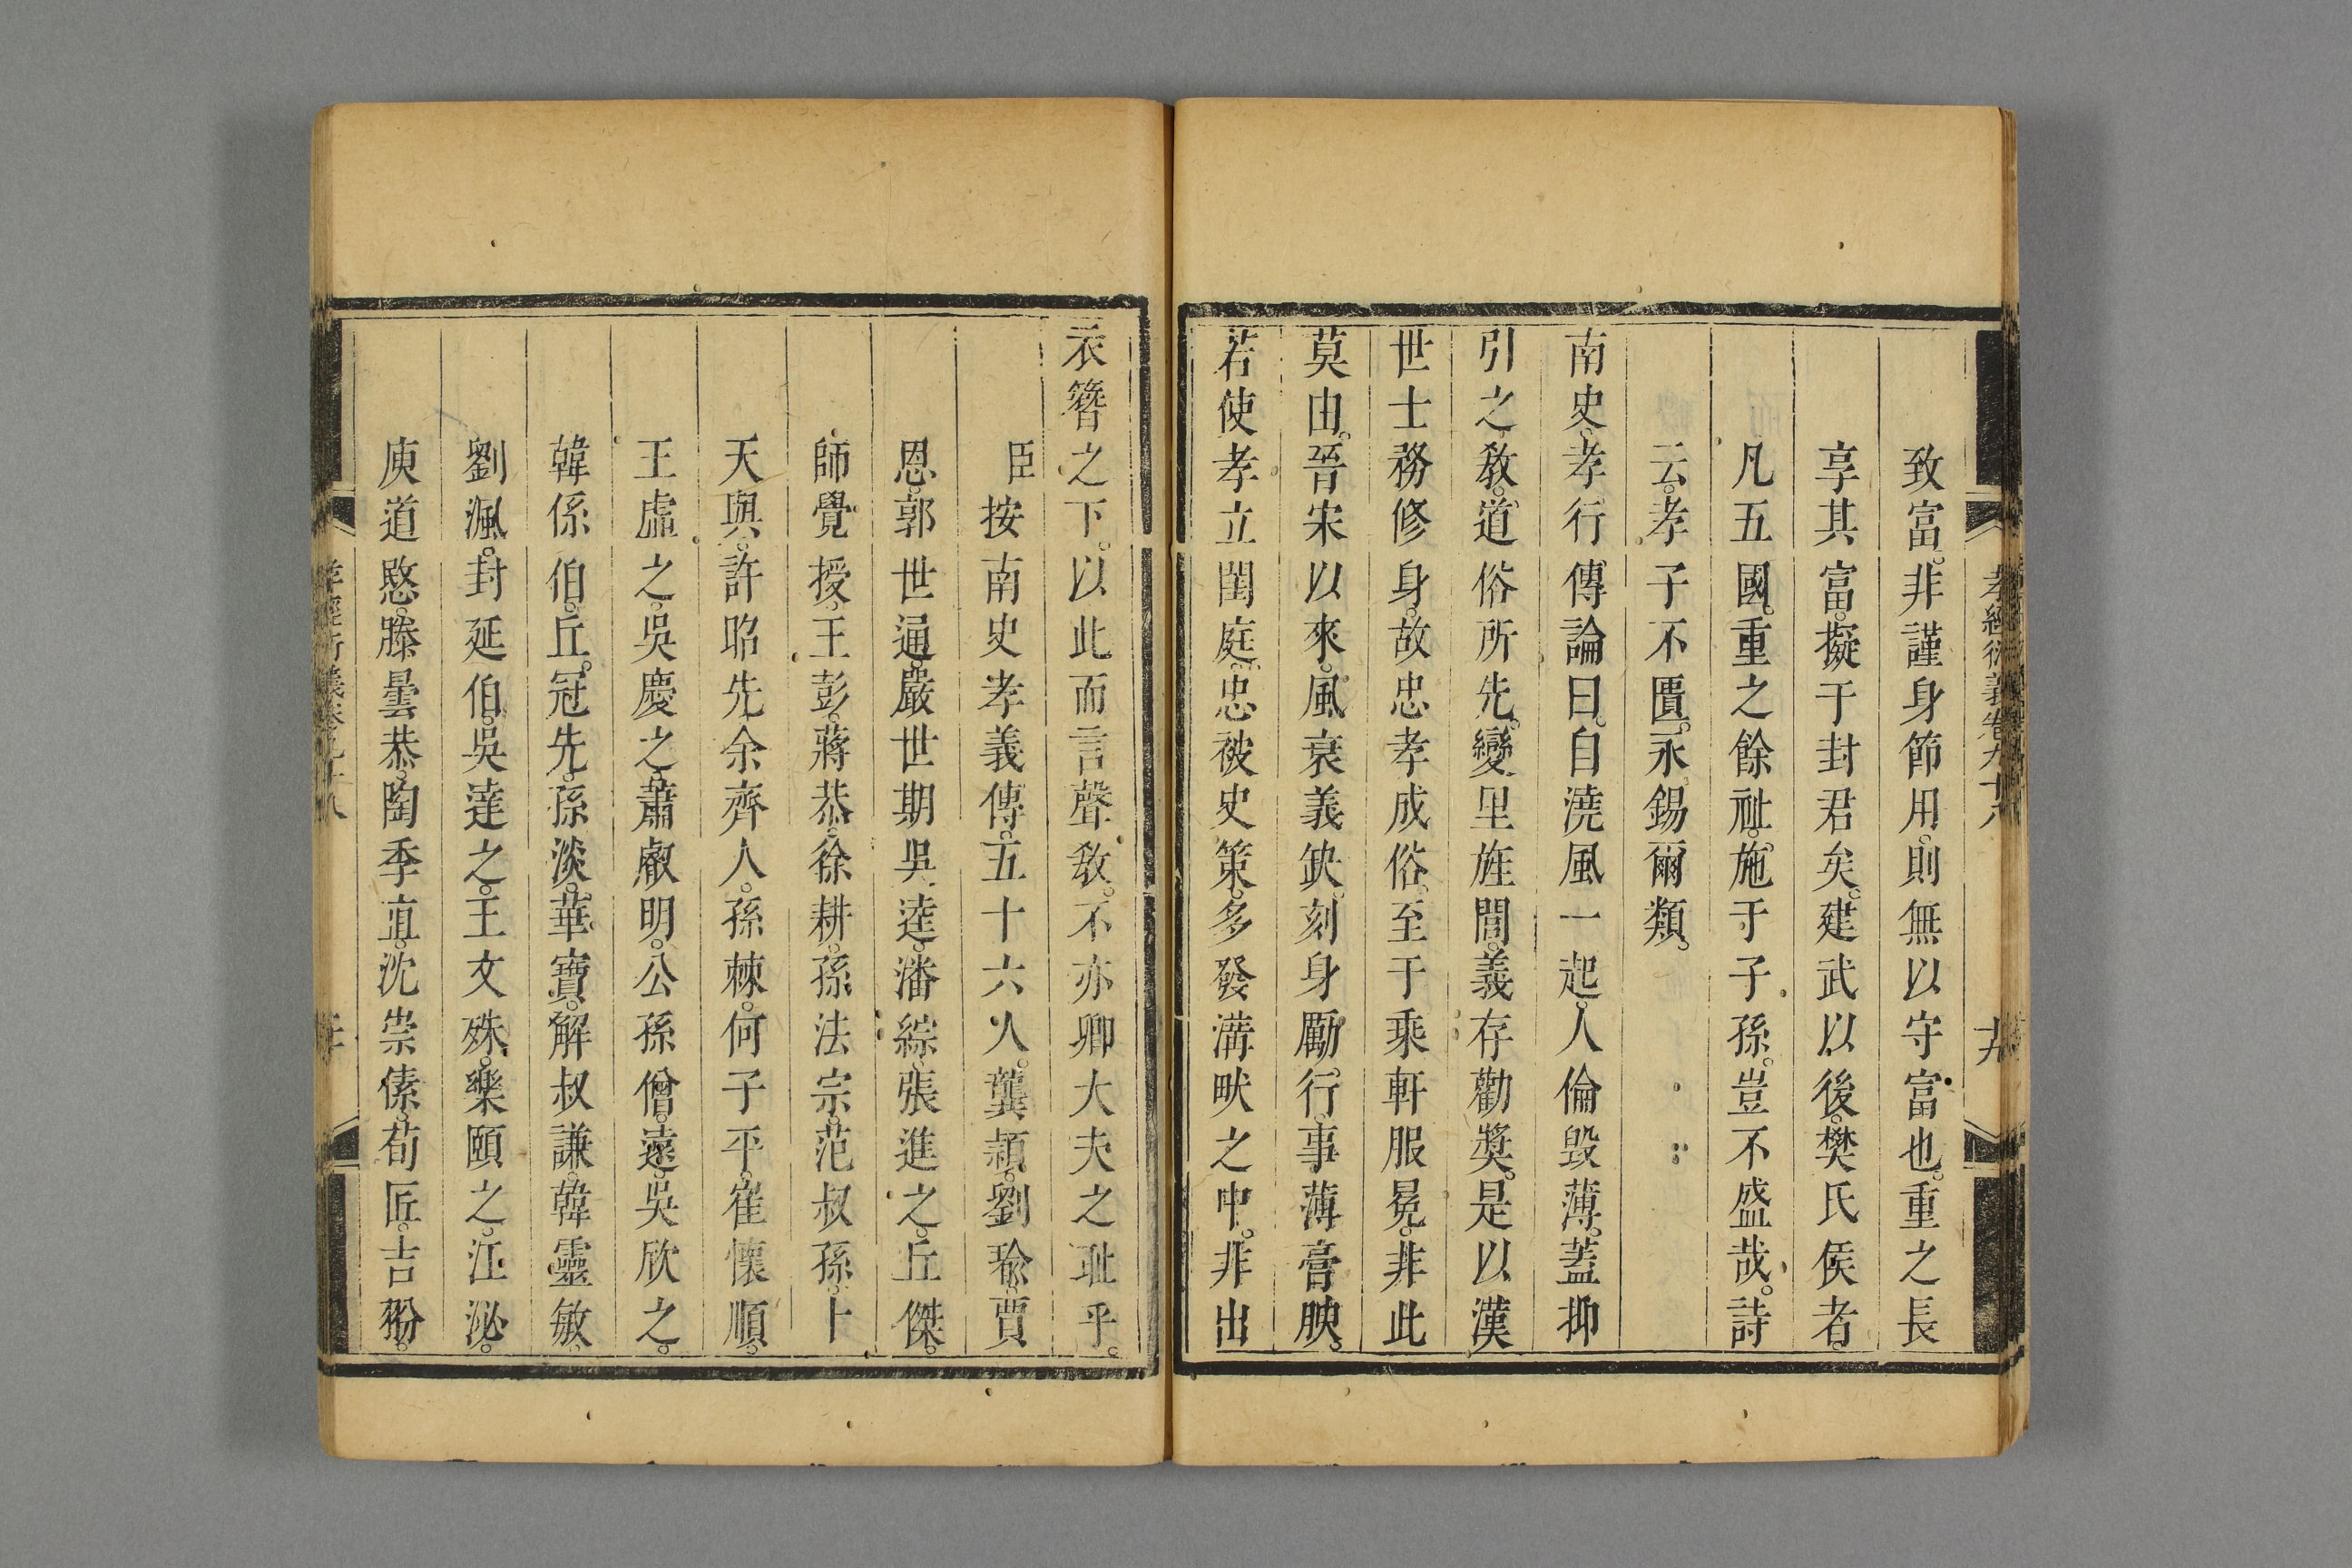 孝經衍義卷九十八　十九
致富。非謹身節用。則無以守富也。重之長
享其富。擬于封君矣。建武以後。樊氏侯者。
凡五國。重之餘祉。施于子孫。豈不盛哉。詩
云。孝子不匱。永錫爾類。
南史。孝行傳論曰。自澆風一起。人倫毀薄。蓋抑
引之教。道俗所先。變里旌閭。義存勸奬。是以漢
世士務修身。故忠孝成俗。至于乘軒服冕。非此
莫由。晉宋以來。風衰義缺。刻身勵行。事薄膏腴。
若使孝立閨庭。忠被史策。多發溝畎之中。非出
衣簪之下。以此而言聲教。不亦卿大夫之耻乎。
臣按南史孝義傳。五十六人。龔穎。劉瑜。賈
恩。郭世通。嚴世期。吳逵。潘綜。張進之。丘傑。
師覺授。王彭。蔣恭。徐耕。孫法宗。范叔孫。卜
天與。許昭先。余齊人。孫棘。何子平。崔懷順。
王虛之。吳慶之。蕭叡明。公孫僧遠。吳欣之。
韓係伯。丘冠先。孫淡。華寶。解叔謙。韓靈敏。
劉渢。封延伯。吳達之。王文殊。樂頤之。江泌。
庾道愍。滕曇恭。陶季直。沈崇傃。荀匠。吉翂。
孝經衍義卷九十八　二十